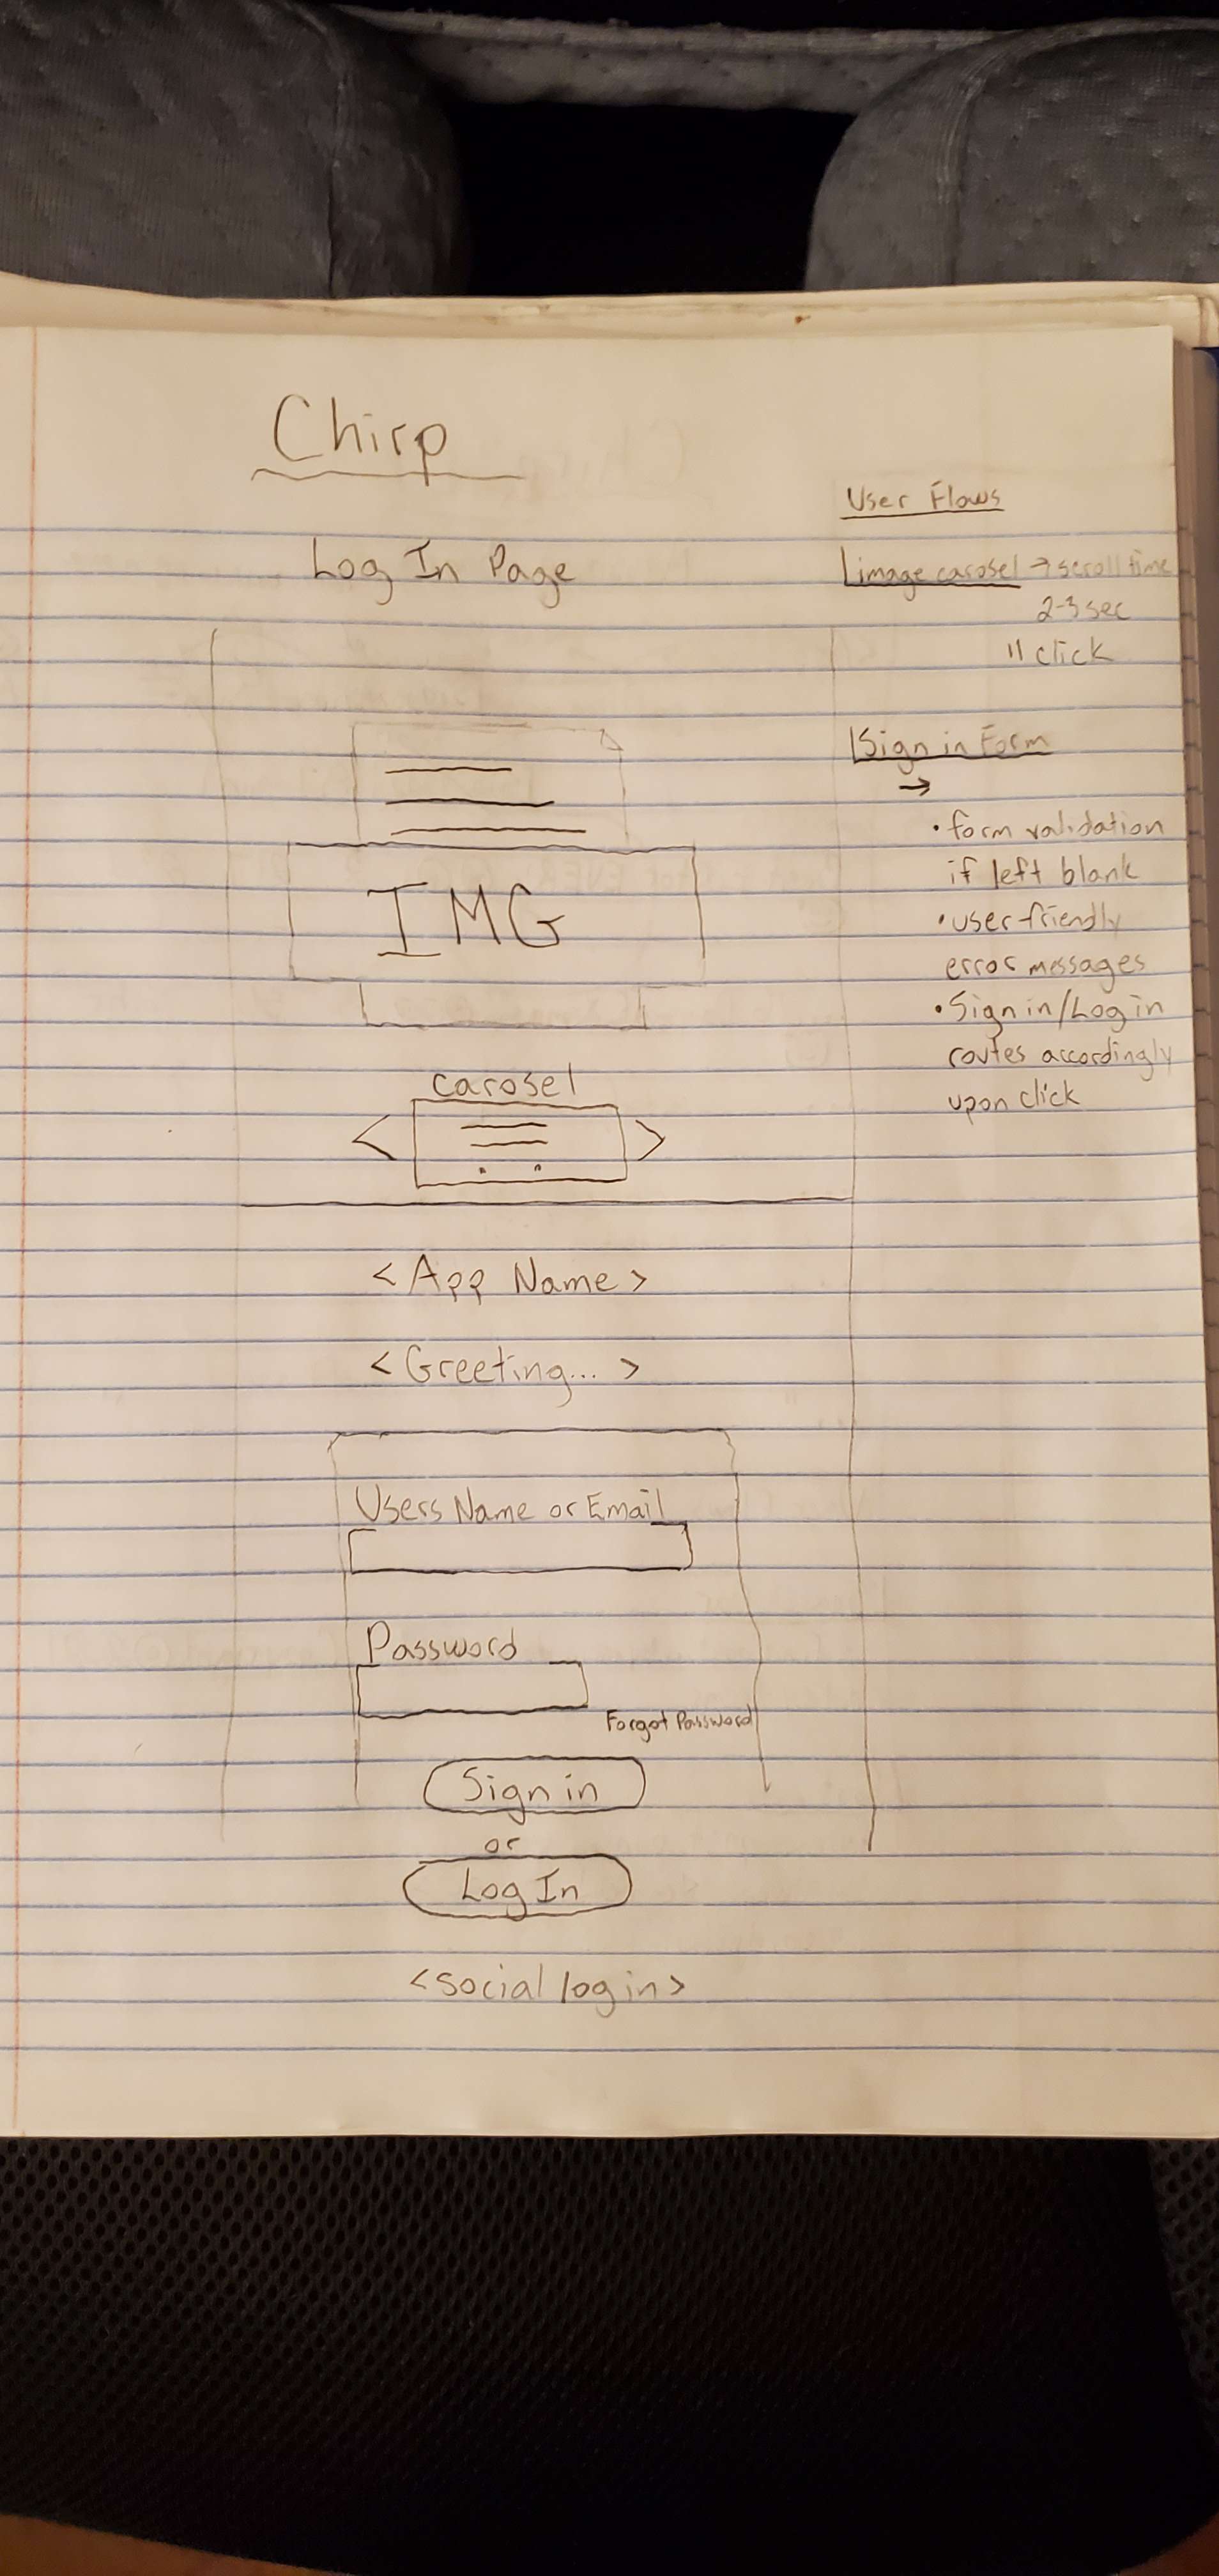 Chirp
Log In Page
IMG
carosel
< App Name >
< Greeting... >
Users Name or Email
Password
Forgot Password
Sign in
or
Log In
<social log in>
User Flows
image carosel → scroll time
2-3 sec
" click
Sign in Form
→
• form validation
if left blank
• user friendly
error messages
• Sign in/Log in
routes accordingly
upon click